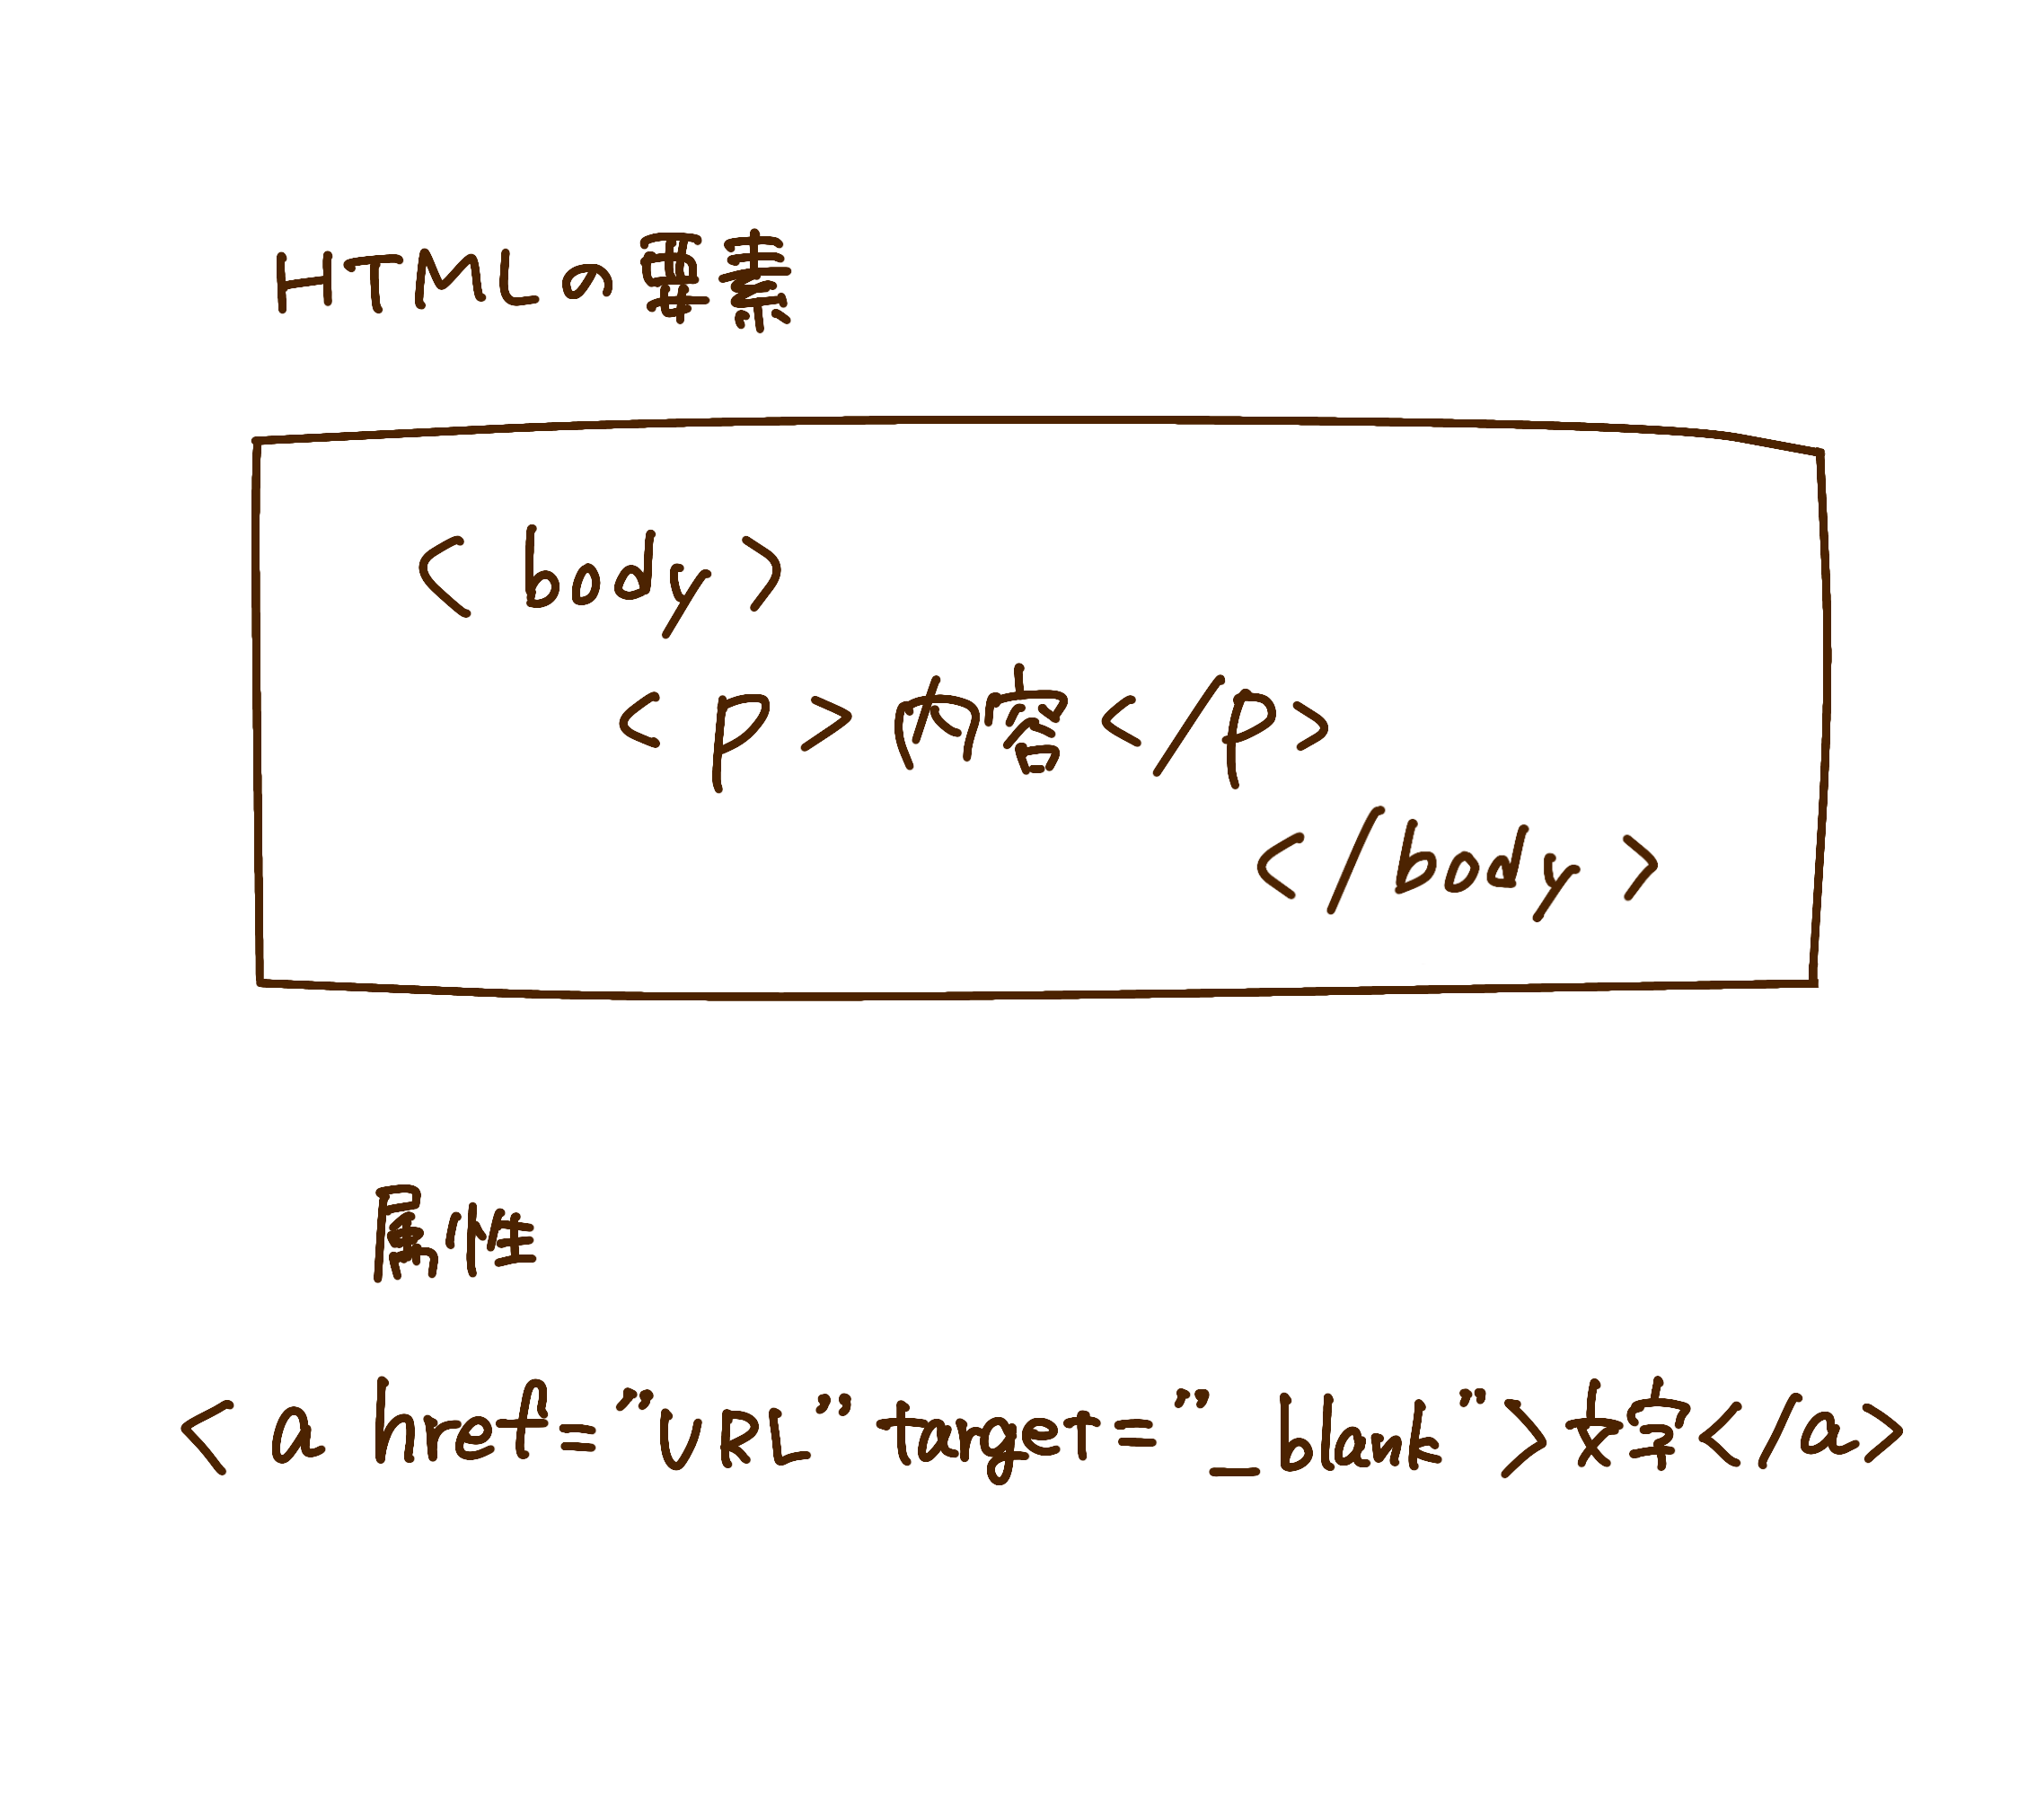 HTMLの要素
<body>
<p>内容</p>
</body>
属性
<a href="URL" target="_blank">文字</a>